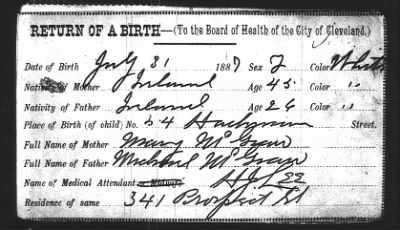 RETURN OF A BIRTH—(To the Board of Health of the City of Cleveland.)
Date of Birth July 31 1887 Sex F Color White
Nativity of Mother Ireland Age 45 Color "
Nativity of Father Ireland Age 26 Color "
Place of Birth (of child) No. 54 Street.
Full Name of Mother Mary McGraw
Full Name of Father Michael McGraw
Name of Medical Attendant
Residence of same 341 Prospect St